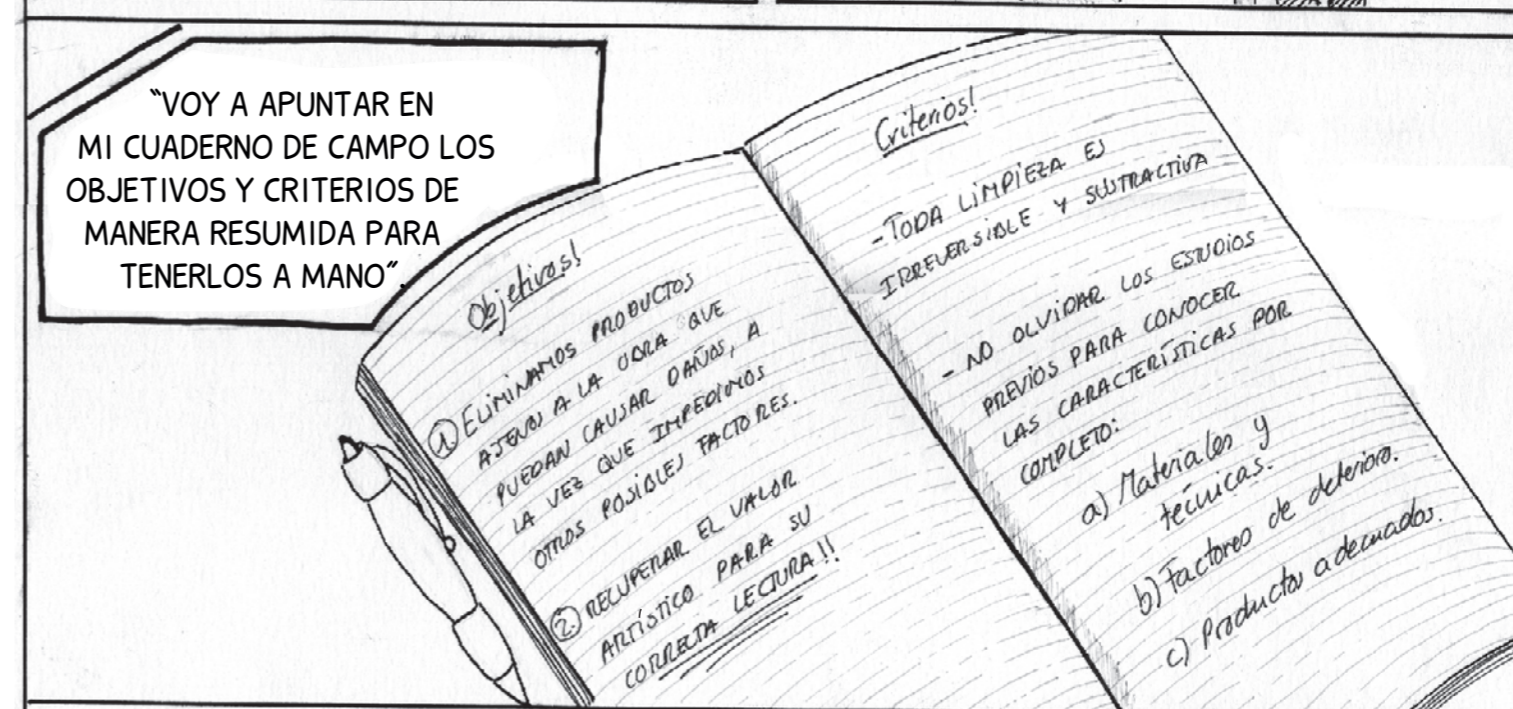 “VOY A APUNTAR EN
MI CUADERNO DE CAMPO LOS
OBJETIVOS Y CRITERIOS DE
MANERA RESUMIDA PARA
TENERLOS A MANO”.
Objetivos!
① ELIMINAMOS PRODUCTOS
AJENOS A LA OBRA QUE
PUEDAN CAUSAR DAÑOS, A
LA VEZ QUE IMPEDIMOS
OTROS POSIBLES FACTORES.
② RECUPERAR EL VALOR
ARTÍSTICO PARA SU
CORRECTA LECTURA!!
Criterios!
- TODA LIMPIEZA ES
IRREVERSIBLE Y SUSTRACTIVA
- NO OLVIDAR LOS ESTUDIOS
PREVIOS PARA CONOCER
LAS CARACTERÍSTICAS POR
COMPLETO:
a) Materiales y
técnicas.
b) Factores de deterioro.
c) Productos adecuados.